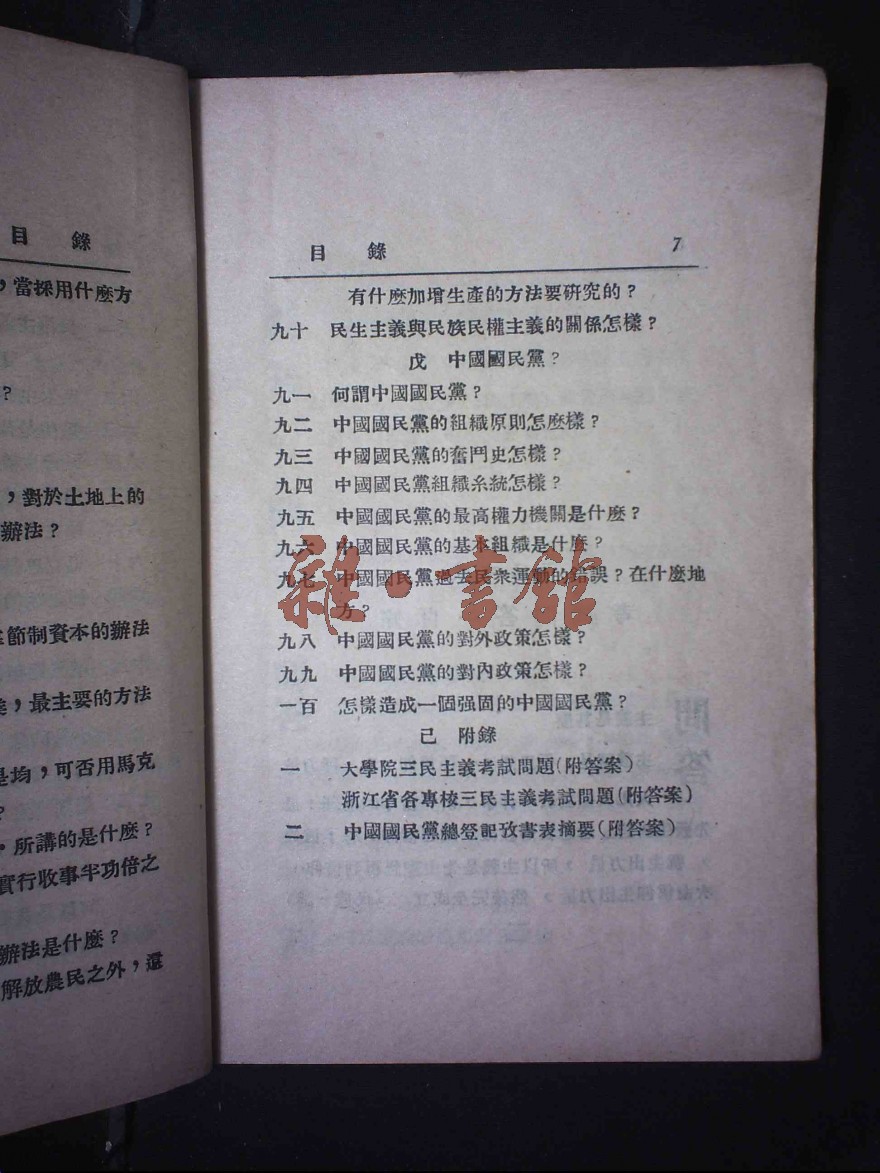 目 錄
，當採用什麽方
？
，對於土地上的
辦法？
節制資本的辦法
，最主要的方法
是均，可否用馬克
？
，所講的是什麽？
實行收事半功倍之
辦法是什麽？
解放農民之外，還
目 錄 7
有什麽加增生產的方法要研究的？
九十 民生主義與民族民權主義的關係怎樣？
戊 中國國民黨？
九一 何謂中國國民黨？
九二 中國國民黨的組織原則怎麽樣？
九三 中國國民黨的奮鬥史怎樣？
九四 中國國民黨組織系統怎樣？
九五 中國國民黨的最高權力機關是什麽？
九六 中國國民黨的基本組織是什麽？
九七 中國國民黨過去民衆運動的錯誤？在什麽地
方？
九八 中國國民黨的對外政策怎樣？
九九 中國國民黨的對內政策怎樣？
一百 怎樣造成一個强固的中國國民黨？
己 附錄
一 大學院三民主義考試問題(附答案)
浙江省各專校三民主義考試問題(附答案)
二 中國國民黨總登記攷書表摘要(附答案)
雜·書館